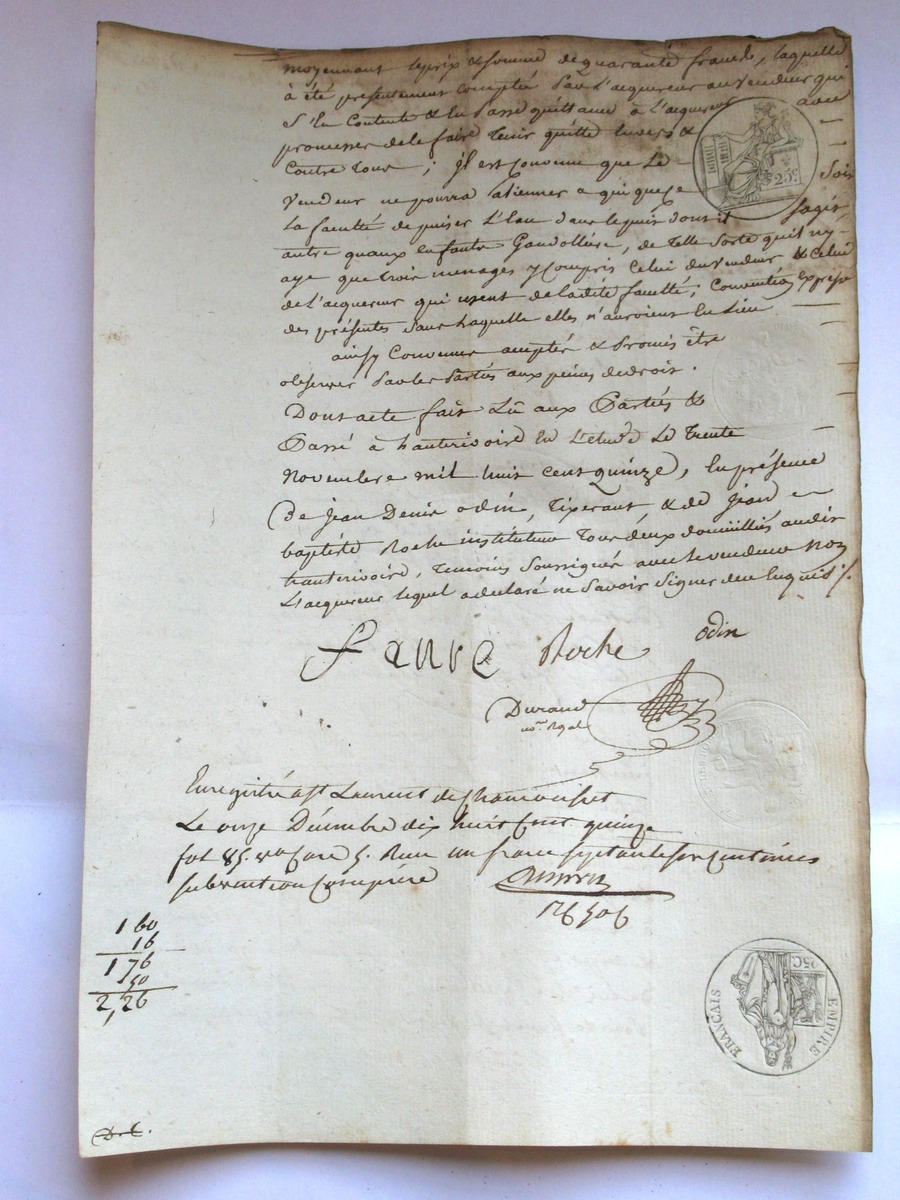 moyennant leprix & somme de quarante francs, laquelle
à été présentement comptée par L'acquereur au vendeur qui
s'en Contente & en passe quittance à L'acquereur avec
promesse de le faire tenir quitte envers &
Contre tous ; il est Convenu que Le
vendeur ne pourra aliener a qui que ce Soit
La faculté de puiser L'Eau dans le puis dont il Sagit,
autre quaux Enfants Gaudollière, de telle sorte quil ny
aye que trois menages y Compris Celui du vendeur & Celui
de L'acquereur qui usent de ladite faculté ; Convention Expresse
des présentes Sans Laquelle elles n'auroient Eu Lieu
ainsy Convenu accepté & Promis être
observer par les Parties aux peines de droit.
Dont acte fait Lû aux Parties &
Passé à hauterivoire En L'etude Le Trente
Novembre mil huit cent quinze, En présence
De Jean Denis odin, Tixerant, & de Jean
baptiste Roche instituteur Tous deux domiciliés audit
hauterivoire, Temoins Soussignés avec le vendeur Non
L'acquereur Lequel a declaré ne Savoir Signer de ce Enquis ./.
Favre Roche odin
Durand
no.re Royal
Enregistré a St Laurent de Chamousset
Le onze Décembre dix huit Cent quinze
fol 85. vo Case 5. Recu un franc septante six Centimes
subvention Comprise
1 60
16
1 76
50
2,26
25C
EMPIRE FRANÇAIS
25C